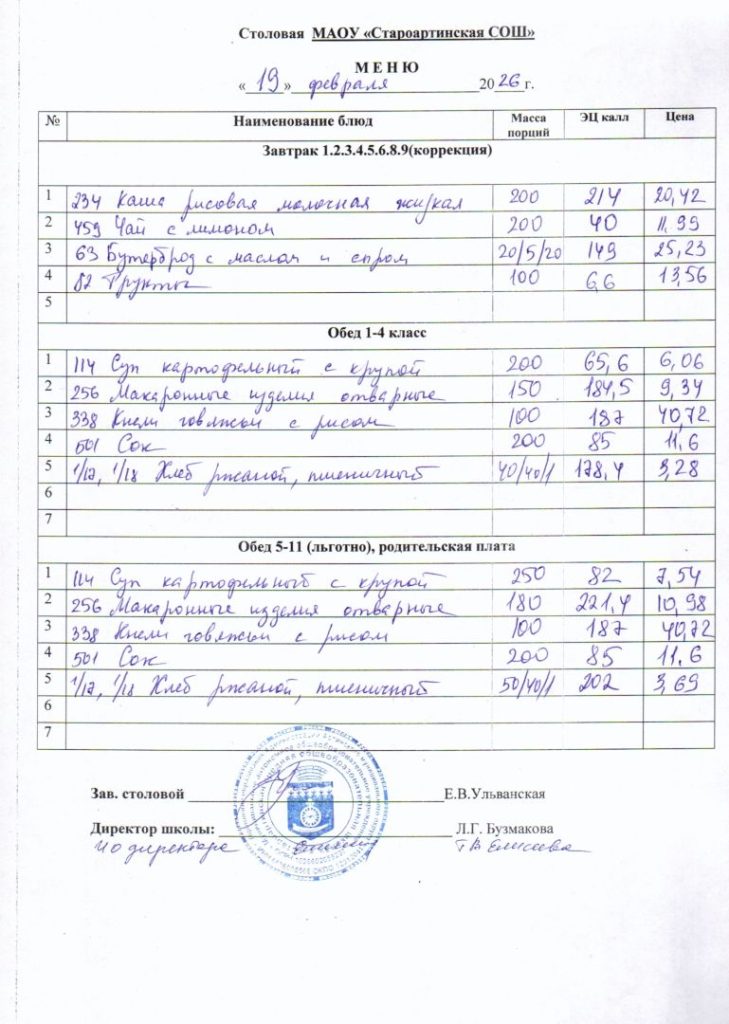 Столовая МАОУ «Староартинская СОШ»
М Е Н Ю
«19» февраля 2026 г.
№ Наименование блюд Масса порций ЭЦ калл Цена
Завтрак 1.2.3.4.5.6.8.9(коррекция)
1 234 Каша рисовая молочная жидкая 200 214 20,42
2 459 Чай с лимоном 200 40 11.99
3 63 Бутерброд с маслом и сыром 20/5/20 149 25,23
4 82 Фрукты 100 6,6 13,56
5
Обед 1-4 класс
1 114 Суп картофельный с крупой 200 65,6 6,06
2 256 Макаронные изделия отварные 150 184,5 9,34
3 338 Кнели говяжьи с рисом 100 187 40,72
4 501 Сок 200 85 11.6
5 1/17, 1/18 Хлеб ржаной, пшеничный 40/40/1 178,4 3,28
6
7
Обед 5-11 (льготно), родительская плата
1 114 Суп картофельный с крупой 250 82 7,54
2 256 Макаронные изделия отварные 180 221,4 10,98
3 338 Кнели говяжьи с рисом 100 187 40,72
4 501 Сок 200 85 11.6
5 1/17, 1/18 Хлеб ржаной, пшеничный 50/40/1 202 3,69
6
7
Зав. столовой Е.В.Ульванская
Директор школы: Л.Г. Бузмакова
ИО директора Т В Елисеева